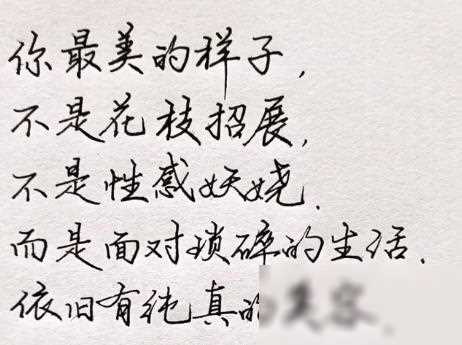 你最美的样子,
不是花枝招展,
不是性感妖娆.
而是面对琐碎的生活.
依旧有纯真的